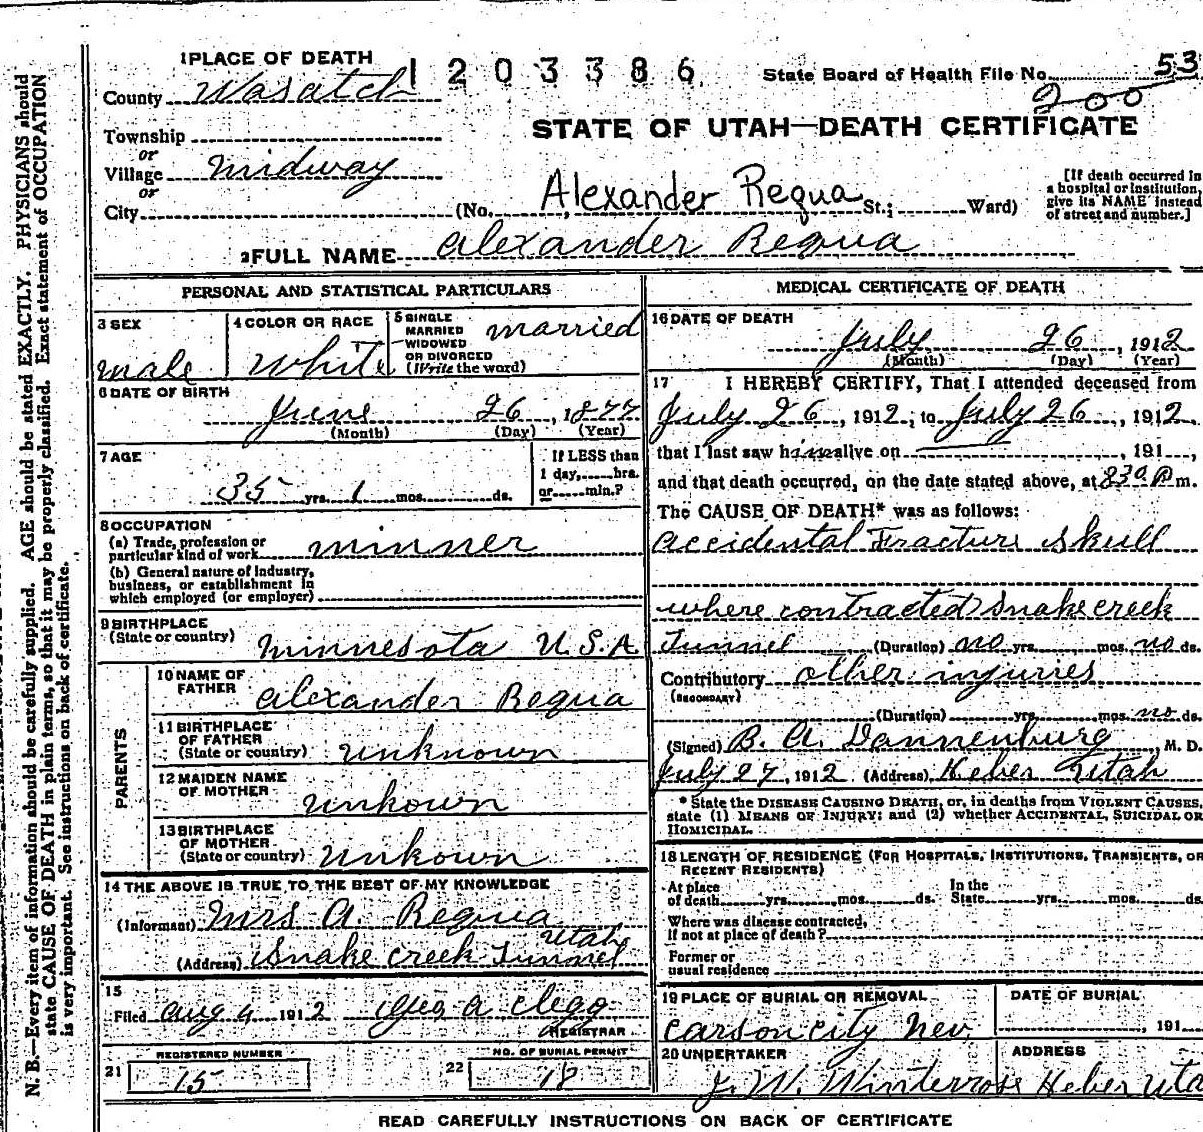 1 PLACE OF DEATH
1203386
State Board of Health File No. 53
200
County Wasatch
STATE OF UTAH—DEATH CERTIFICATE
Township
or
Village Midway
or
City (No. , Alexander Requa St.; Ward)
[If death occurred in
a hospital or institution,
give its NAME instead
of street and number.]
2 FULL NAME Alexander Requa
PERSONAL AND STATISTICAL PARTICULARS
3 SEX
male
4 COLOR OR RACE
White
5 SINGLE
MARRIED
WIDOWED
OR DIVORCED
(Write the word)
married
6 DATE OF BIRTH
June 26, 1877
(Month) (Day) (Year)
7 AGE
35 yrs. 1 mos. ds.
If LESS than
1 day, hrs.
or min.?
8 OCCUPATION
(a) Trade, profession or
particular kind of work minner
(b) General nature of industry,
business, or establishment in
which employed (or employer)
9 BIRTHPLACE
(State or country) Minnesota U.S.A.
PARENTS
10 NAME OF
FATHER Alexander Requa
11 BIRTHPLACE
OF FATHER
(State or country) unknown
12 MAIDEN NAME
OF MOTHER unkown
13 BIRTHPLACE
OF MOTHER
(State or country) unkown
14 THE ABOVE IS TRUE TO THE BEST OF MY KNOWLEDGE
(Informant) Mrs A. Requa
Utah
(Address) Snake creek Tunnel
15
Filed Aug 4 1912 Geo A Clegg
REGISTRAR
REGISTERED NUMBER
21 15
NO. OF BURIAL PERMIT
22 18
MEDICAL CERTIFICATE OF DEATH
16 DATE OF DEATH
July 26, 1912
(Month) (Day) (Year)
17 I HEREBY CERTIFY, That I attended deceased from
July 26, 1912, to July 26, 1912,
that I last saw him alive on , 191 ,
and that death occurred, on the date stated above, at 830 P m.
The CAUSE OF DEATH* was as follows:
Accidental Fracture Skull
where contracted Snake creek
Tunnel (Duration) no yrs. mos. no ds.
Contributory other injuries
(SECONDARY)
(Duration) yrs. mos. no ds.
(Signed) B. A. Dannenburg, M. D.
July 27, 1912 (Address) Heber Utah
* State the DISEASE CAUSING DEATH, or, in deaths from VIOLENT CAUSES,
state (1) MEANS OF INJURY; and (2) whether ACCIDENTAL, SUICIDAL OR
HOMICIDAL.
18 LENGTH OF RESIDENCE (FOR HOSPITALS, INSTITUTIONS, TRANSIENTS, OR
RECENT RESIDENTS)
At place
of death yrs. mos. ds.
In the
State yrs. mos. ds.
Where was disease contracted,
If not at place of death?
Former or
usual residence
19 PLACE OF BURIAL OR REMOVAL
Carson City Nev.
DATE OF BURIAL
, 191
20 UNDERTAKER
J. W. Winterrose
ADDRESS
Heber Uta
READ CAREFULLY INSTRUCTIONS ON BACK OF CERTIFICATE
N. B.—Every item of information should be carefully supplied. AGE should be stated EXACTLY. PHYSICIANS should
state CAUSE OF DEATH in plain terms, so that it may be properly classified. Exact statement of OCCUPATION
is very important. See instructions on back of certificate.